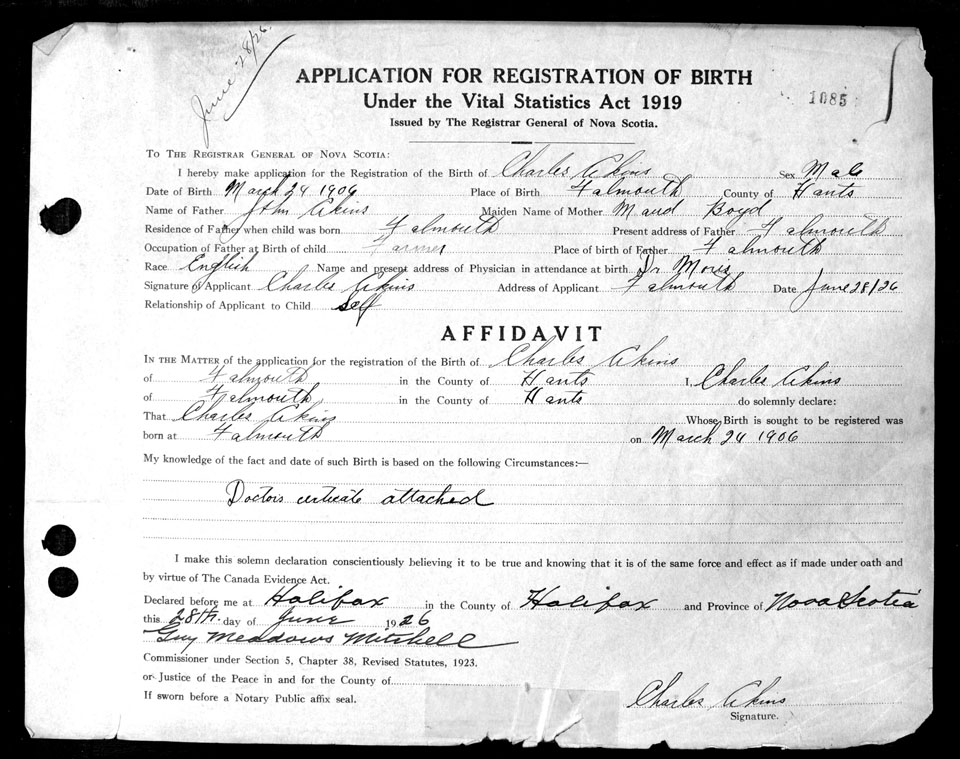 June 28/26
APPLICATION FOR REGISTRATION OF BIRTH
1085
Under the Vital Statistics Act 1919
Issued by The Registrar General of Nova Scotia.
TO THE REGISTRAR GENERAL OF NOVA SCOTIA:
I hereby make application for the Registration of the Birth of Charles Akins Sex Male
Date of Birth March 24 1906 Place of Birth Falmouth County of Hants
Name of Father John Akins Maiden Name of Mother Maud Boyd
Residence of Father when child was born Falmouth Present address of Father Falmouth
Occupation of Father at Birth of child Farmer Place of birth of Father Falmouth
Race English Name and present address of Physician in attendance at birth Dr Moris
Signature of Applicant Charles Akins Address of Applicant Falmouth Date June 28/26
Relationship of Applicant to Child self
AFFIDAVIT
IN THE MATTER of the application for the registration of the Birth of Charles Akins
of Falmouth in the County of Hants I, Charles Akins
of Falmouth in the County of Hants do solemnly declare:
That Charles Akins Whose Birth is sought to be registered was
born at Falmouth on March 24 1906
My knowledge of the fact and date of such Birth is based on the following Circumstances:—
Doctors certicate attached
I make this solemn declaration conscientiously believing it to be true and knowing that it is of the same force and effect as if made under oath and
by virtue of The Canada Evidence Act.
Declared before me at Halifax in the County of Halifax and Province of Nova Scotia
this 28th. day of June 1926
Guy Meadows Mitchell
Commissioner under Section 5, Chapter 38, Revised Statutes, 1923.
or Justice of the Peace in and for the County of
If sworn before a Notary Public affix seal.
Charles Akins
Signature.